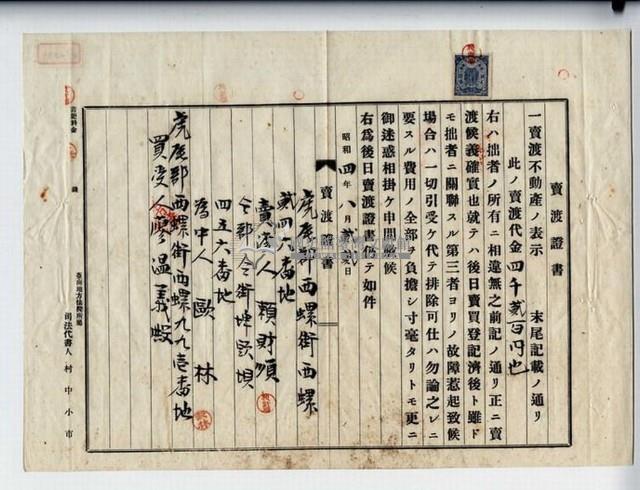 賣渡證書
一賣渡不動産ノ表示 末尾記載ノ通リ
此ノ賣渡代金四千貳百円也
右ハ拙者ノ所有ニ相違無之前記ノ通リ正ニ賣
渡候義確實也就テハ後日賣買登記濟後ト雖ド
モ拙者ニ關聯スル第三者ヨリノ故障惹起致候
場合ハ一切引受ケ代テ排除可仕ハ勿論之レニ
要スル費用ノ全部ヲ負擔シ寸毫タリトモ更ニ
御迷惑相掛ケ申間敷候
右爲後日賣渡證書仍テ如件
昭和四年八月貳 日
賣渡證書
虎尾郡西螺街西螺
貳四六番地
賣渡人 賴財順
仝郡仝街埤頭埧
四五六番地
爲中人 歐林
虎尾郡西螺街西螺九九壱番地
買受人 廖温義殿
書記料金 錢
司法代書人 村中小市